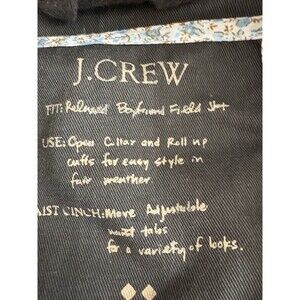 J.CREW
FIT: Relaxed Boyfriend Field
USE: Open Collar and Roll up
cuffs for easy style in
fair weather.
AIST CINCH: More Adjustable
waist tabs
for a variety of looks.